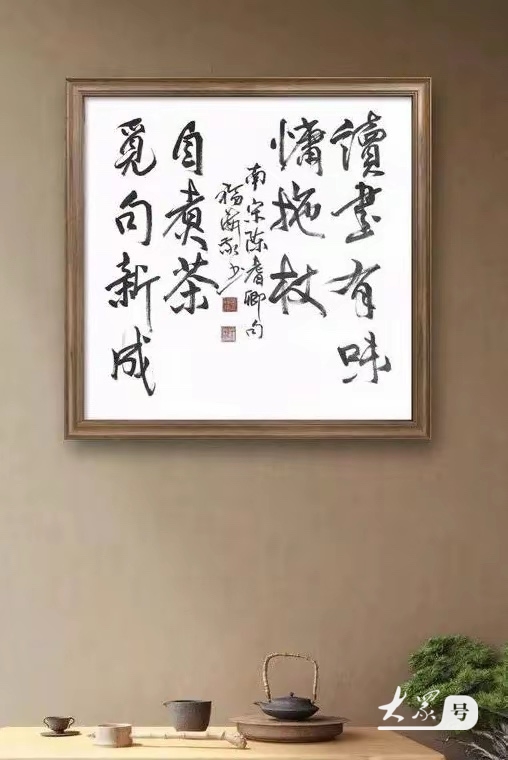 讀書有味
慵拖杖
覓句新成
自煮茶
南宋陈耆卿句
大眾号